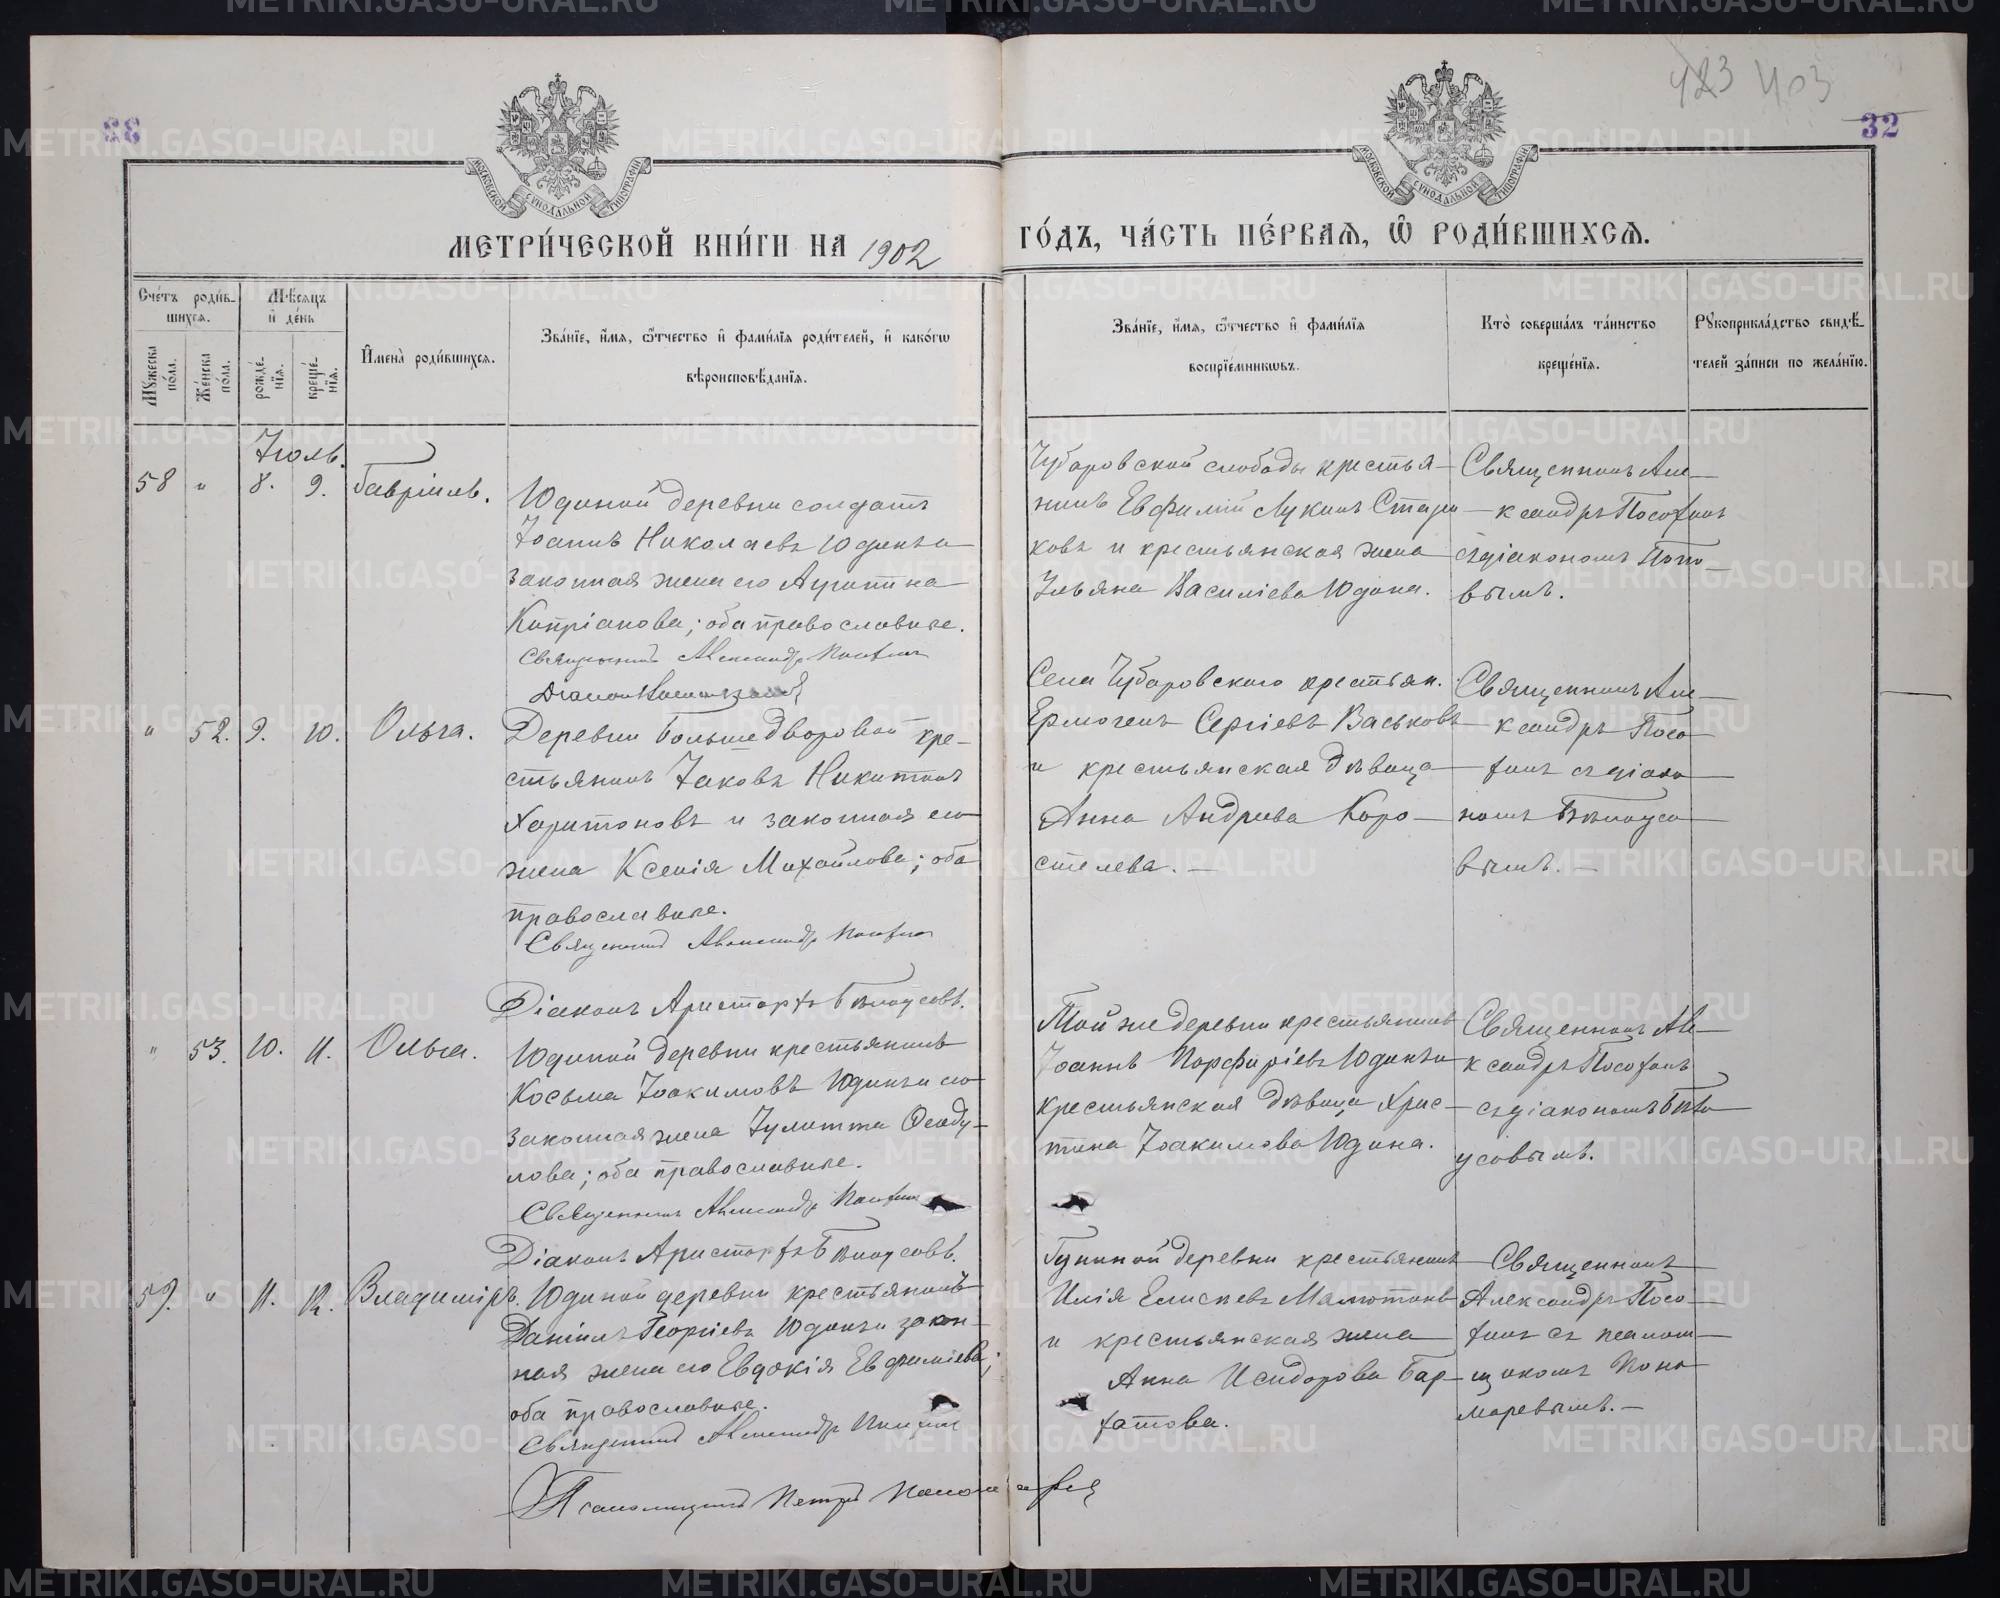 423 403
33
32
МОСКОВСКОЙ СѴНОДАЛЬНОЙ ТИПОГРАФІИ
МОСКОВСКОЙ СѴНОДАЛЬНОЙ ТИПОГРАФІИ
МЕТРИ́ЧЕСКОЙ КНИ́ГИ НА 1902
ГО́ДЪ, ЧА́СТЬ ПЕ́РВАЯ, Ѽ РОДИ́ВШИХСЯ.
Сче́тъ роди́в-
шихся.
Мѣ́сяцъ
и҆ де́нь
Мꙋжеска по́ла.
Же́нска по́ла.
рожде́-
нїѧ.
креще́-
нїѧ.
И҆мена̀ роди́вшихсѧ.
Зва́нїе, и҆́мѧ, ѻ҆́тчество и҆ фами́лїѧ роди́телей, и҆ како́гѡ
вѣроисповѣ́данїѧ.
Зва́нїе, и҆́мѧ, ѻ҆́тчество и҆ фами́лїѧ
воспрїе́мникѡвъ.
Кто̀ соверша́лъ та́инство
креще́нїѧ.
Рꙋкоприкла́дство свидѣ́-
телей за́писи по жела́нїю.
Іюль.
58 " 8. 9. Гавріилъ.
Юдиной деревни солдатъ
Іоаннъ Николаевъ Юдинъ и
законная жена его Агрипина
Кипріанова; оба православные.
Священникъ Александръ Посохинъ
Діаконъ
Чубаровской слободы крестья-
нинъ Евфимій Лукинъ Стари-
ковъ и крестьянская жена
Ульяна Василіева Юдина.
Священникъ Але-
ксандръ Посохинъ
съ діакономъ Попо-
вымъ.
" 52. 9. 10. Ольга.
Деревни Большедворовой кре-
стьянинъ Іаковъ Никитинъ
Харитоновъ и законная его
жена Ксенія Михайлова; оба
православные.
Священникъ Александръ Посохинъ
Діаконъ Аристархъ Бѣлоусовъ.
Села Чубаровскаго крестьян.
Ермогенъ Сергіевъ Васьковъ
и крестьянская дѣвица
Анна Андреева Коро-
стелева.
Священникъ Але-
ксандръ Посо-
хинъ съ діако-
номъ Бѣлоусо-
вымъ.
" 53. 10. 11. Ольга.
Юдиной деревни крестьянинъ
Косьма Іоакимовъ Юдинъ и его
законная жена Іулитта Ѳеоду-
лова; оба православные.
Священникъ Александръ Посохинъ
Діаконъ Аристархъ Бѣлоусовъ.
Той же деревни крестьянинъ
Іоаннъ Порфиріевъ Юдинъ и
крестьянская дѣвица Хрис-
тина Іоакимова Юдина.
Священникъ Але-
ксандръ Посохинъ
съ діакономъ Бѣло-
усовымъ.
59. " 11. 12. Владиміръ.
Юдиной деревни крестьянинъ
Даніилъ Георгіевъ Юдинъ и закон-
ная жена его Евдокія Евфиміева;
оба православные.
Священникъ Александръ Посохинъ
Псаломщикъ Петръ Пономаревъ
Гуниной деревни крестьянинъ
Илія Елисеевъ Мамонтовъ
и крестьянская жена
Анна Исидорова Бар-
хатова.
Священникъ
Александръ Посо-
хинъ съ псалом-
щикомъ Поно-
маревымъ.